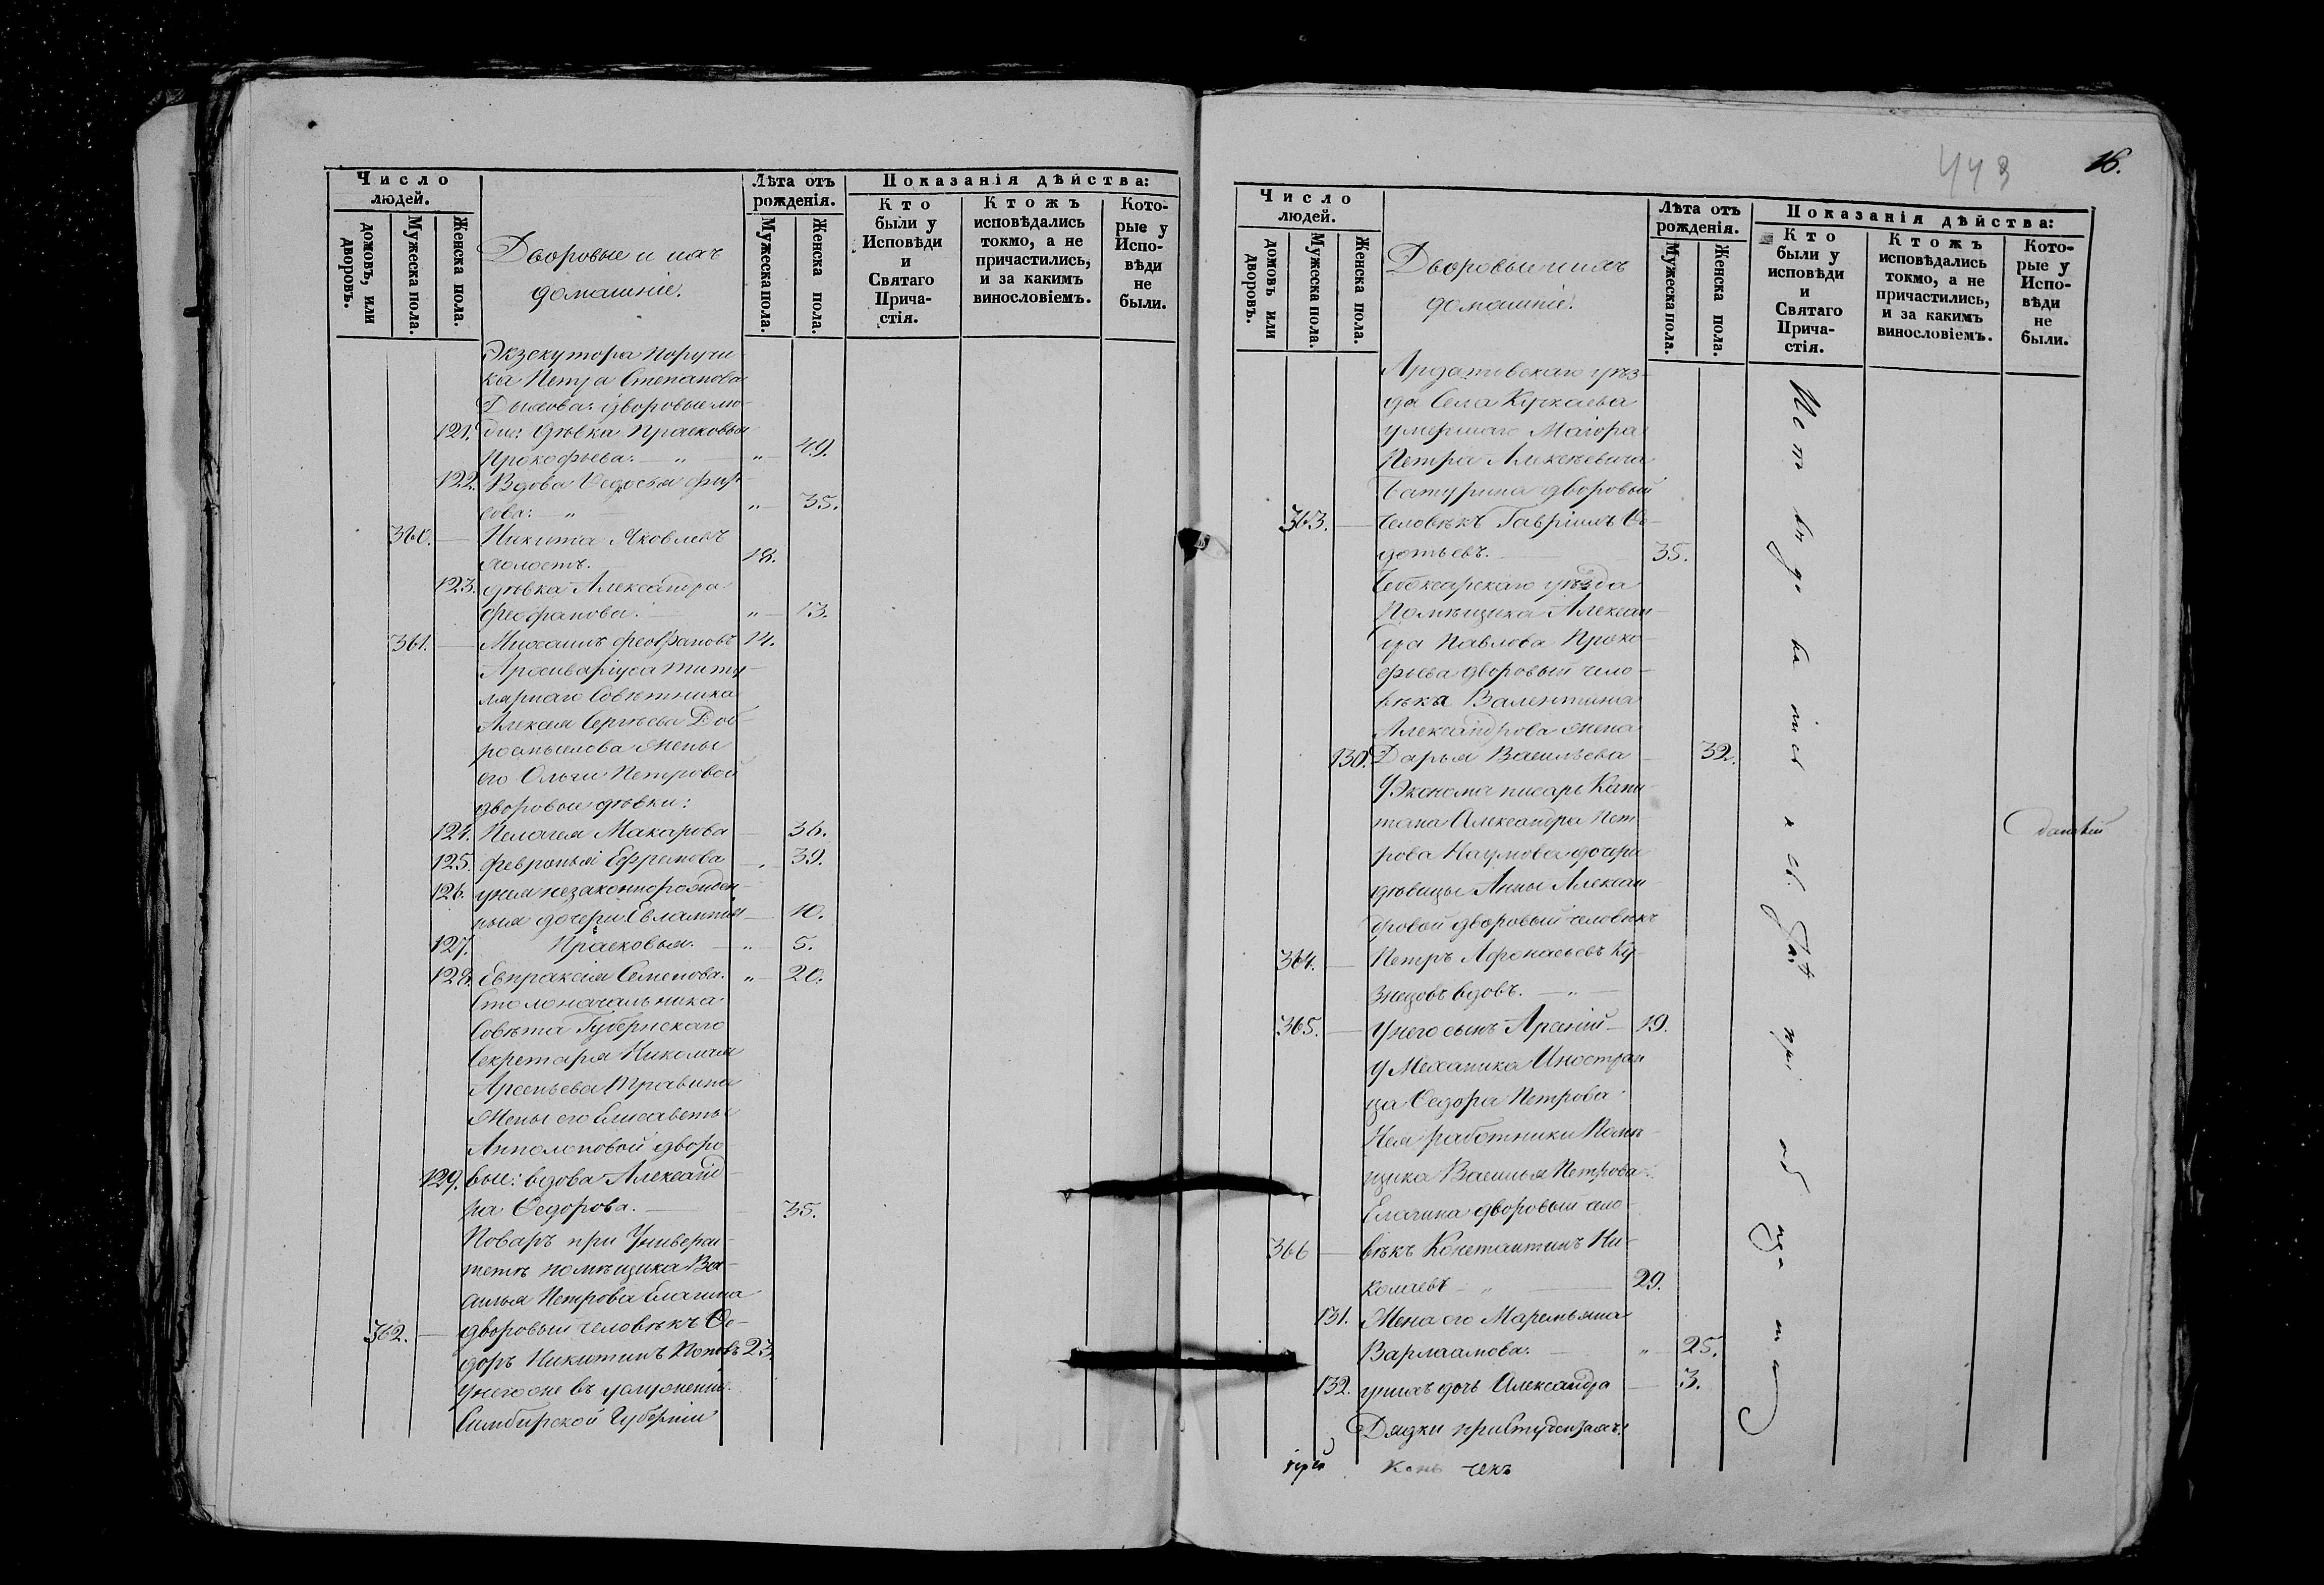 Число людей.
домовъ, или дворовъ.
Мужеска пола.
Женска пола.
Дворовые и ихъ
домашніе.
Лѣта отъ рожденія.
Мужеска пола.
Женска пола.
Показанія дѣйства:
Кто были у Исповѣди и Святаго Причастія.
Ктожъ исповѣдались токмо, а не причастились, и за какимъ винословіемъ.
Которые у Исповѣди не были.
Экзекутора Поручи
ка Петра Степанова
дворовые лю-
121. дие: дѣвка Прасковья
Прокофьева: — „ „ — 49.
122. Вдова Ѳедосья Фир-
сова: — „ „ — 35.
360. — Никита Яковлевъ
холостъ. 18.
123. дѣвка Александра
Феофанова. — „ — 13.
361. — Михаилъ Феофановъ 14.
Архиваріуса титу-
лярнаго Совѣтника
Алексея Сергѣева Доб-
росмыслова жены
его Ольги Петровой
дворовые дѣвки:
124. Пелагея Макарова — 36.
125. Февронья Ефремова — „ 39.
126. у нея незаконнорожден-
ныя дочери Евлампія — 10.
127. Прасковья. — „ — 5.
128. Евпраксія Семенова. „ — 20.
Столоначальника
Совѣта Губернскаго
Секретаря Николая
Арсеньева Травина
Жены его Елисаветы
Аполоновой дворо
129. вые: вдова Александ-
ра Ѳедорова. — 35.
Поваръ при Универси-
тетѣ помѣщика Ва-
силья Петрова Елагина
362. — дворовый человѣкъ Ѳе-
доръ Никитинъ Поповъ 23.
У него же въ услуженіи
Симбирской Губерніи
443
16.
Число людей.
домовъ или дворовъ.
Мужеска пола.
Женска пола.
Дворовые и ихъ
домашніе.
Лѣта отъ рожденія.
Мужеска пола.
Женска пола.
Показанія дѣйства:
Кто были у исповѣди и Святаго Причастія.
Ктожъ исповѣдались токмо, а не причастились, и за какимъ винословіемъ.
Которые у Исповѣди не были.
Ардатовскаго уѣз-
да Села Кучкаева
умершаго Маіора
Петра Алексѣевича
Батурина дворовый
363. — человѣкъ Гавріилъ Ѳе-
дотьевъ. — 35.
Чебоксарскаго уѣзда
Помѣщика Алексан-
дра Павлова Проко-
фьева дворовый чело-
вѣка Валентина
Александрова жена
130. Дарья Васильева — 32.
У Эконома писаря Капи-
тана Александра Пет
рова Наумова дочери
дѣвицы Анны Алексан-
дровой дворовый человѣкъ
364. — Петръ Афонасьевъ Ку-
знецовъ вдовъ. — „ —
365. — У него сынъ Арсеній — 19.
У Механика Иностран
ца Ѳедора Петрова
работники Помѣ-
щика Василья Петрова
Елагина дворовый чело-
366 — вѣкъ Константинъ Ни-
колаевъ — „ — 29.
131. Жена его Маремьяна
Варлаамова. — „ — 25.
132. у нихъ дочь Александра — 3.
Дядки при Студентахъ: